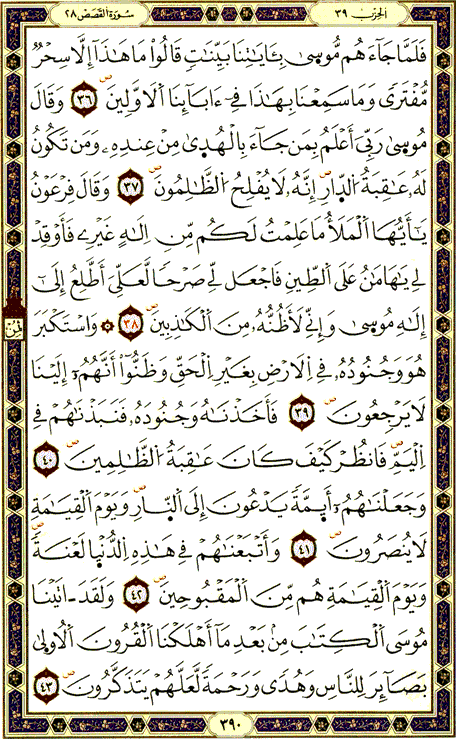 الحزب ٣٩
سورة القصص ٢٨
فَلَمَّا جَآءَهُم مُّوسىٰ بِـَٔايَٰتِنَا بَيِّنَٰتٍ قَالُوا۟ مَا هَٰذَآ إِلَّا سِحْرٌ
مُّفْتَرىً وَمَا سَمِعْنَا بِهَٰذَا فِےٓ ءَابَآئِنَا اَ۬لَاوَّلِينَ ٣٦ وَقَالَ
مُوسىٰ رَبِّيَ أَعْلَمُ بِمَن جَآءَ بِالْهُدىٰ مِنْ عِندِهِۦ وَمَن تَكُونُ
لَهُۥ عَٰقِبَةُ اُ۬لدِّارِ إِنَّهُۥ لَا يُفْلِحُ اُ۬لظَّٰلِمُونَ ٣٧ وَقَالَ فِرْعَوْنُ
يَٰٓأَيُّهَا اَ۬لْمَلَأُ مَا عَلِمْتُ لَكُم مِّنِ اِلَٰهٍ غَيْرِے فَأَوْقِدْ
لِے يَٰهَٰمَٰنُ عَلَى اَ۬لطِّينِ فَاجْعَل لِّے صَرْحاً لَّعَلِّيَ أَطَّلِعُ إِلَىٰٓ
إِلَٰهِ مُوسىٰ وَإِنِّے لَأَظُنُّهُۥ مِنَ اَ۬لْكَٰذِبِينَ ٣٨ ۞ وَاسْتَكْبَرَ
هُوَ وَجُنُودُهُۥ فِے اِ۬لَارْضِ بِغَيْرِ اِ۬لْحَقِّ وَظَنُّوٓا۟ أَنَّهُمُۥٓ إِلَيْنَا
لَا يَرْجِعُونَ ٣٩ فَأَخَذْنَٰهُ وَجُنُودَهُۥ فَنَبَذْنَٰهُمْ فِے
اِ۬لْيَمِّ فَانظُرْ كَيْفَ كَانَ عَٰقِبَةُ اُ۬لظَّٰلِمِينَ ٤٠
وَجَعَلْنَٰهُمُۥٓ أَيِمَّةً يَدْعُونَ إِلَى اَ۬لنّ۪ارِ وَيَوْمَ اَ۬لْقِيَٰمَةِ
لَا يُنصَرُونَ ٤١ وَأَتْبَعْنَٰهُمْ فِے هَٰذِهِ اِ۬لدُّنْيا لَعْنَةً
وَيَوْمَ اَ۬لْقِيَٰمَةِ هُم مِّنَ اَ۬لْمَقْبُوحِينَ ٤٢ وَلَقَدَ اٰتَيْنَا
مُوسَى اَ۬لْكِتَٰبَ مِنۢ بَعْدِ مَآ أَهْلَكْنَا اَ۬لْقُرُونَ اَ۬لُاولىٰ
بَصَآئِرَ لِلنَّاسِ وَهُدىً وَرَحْمَةً لَّعَلَّهُمْ يَتَذَكَّرُونَ ٤٣
٣٩٠